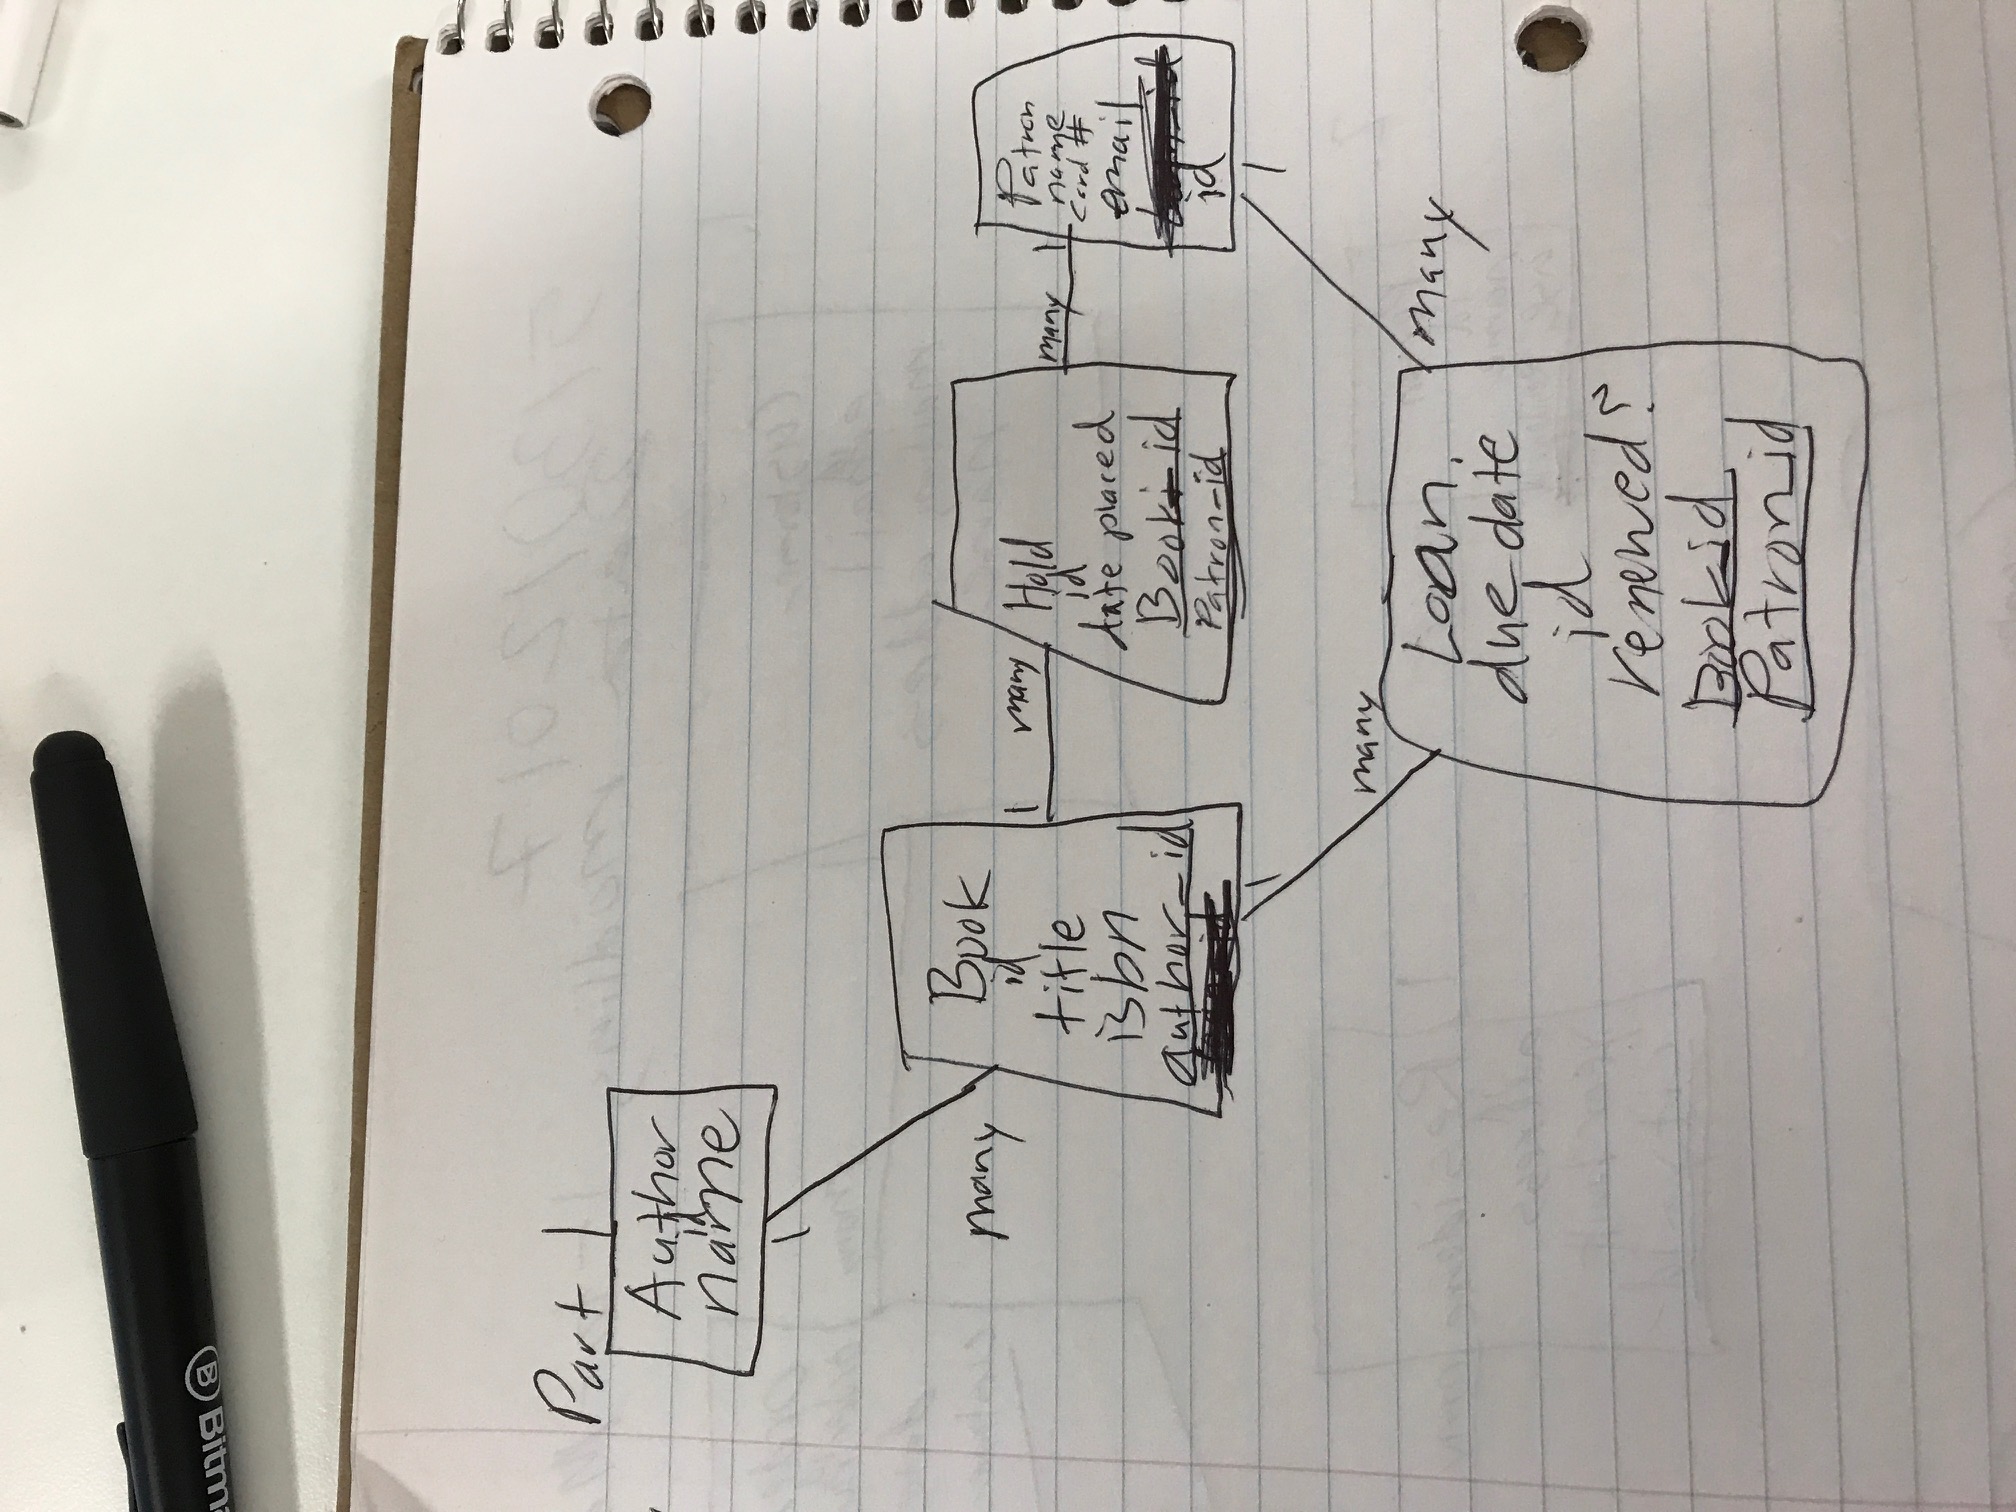 Bitma
Part 1
Author
id
name
1
many
Book
id
title
isbn
author_id
1
many
Hold
id
date placed
Book_id
Patron_id
many
1
Patron
name
Card #
email
id
1
many
1
many
Loan.
due date
id
renewed?
Book_id
Patron_id
5/30/2017
Data modling